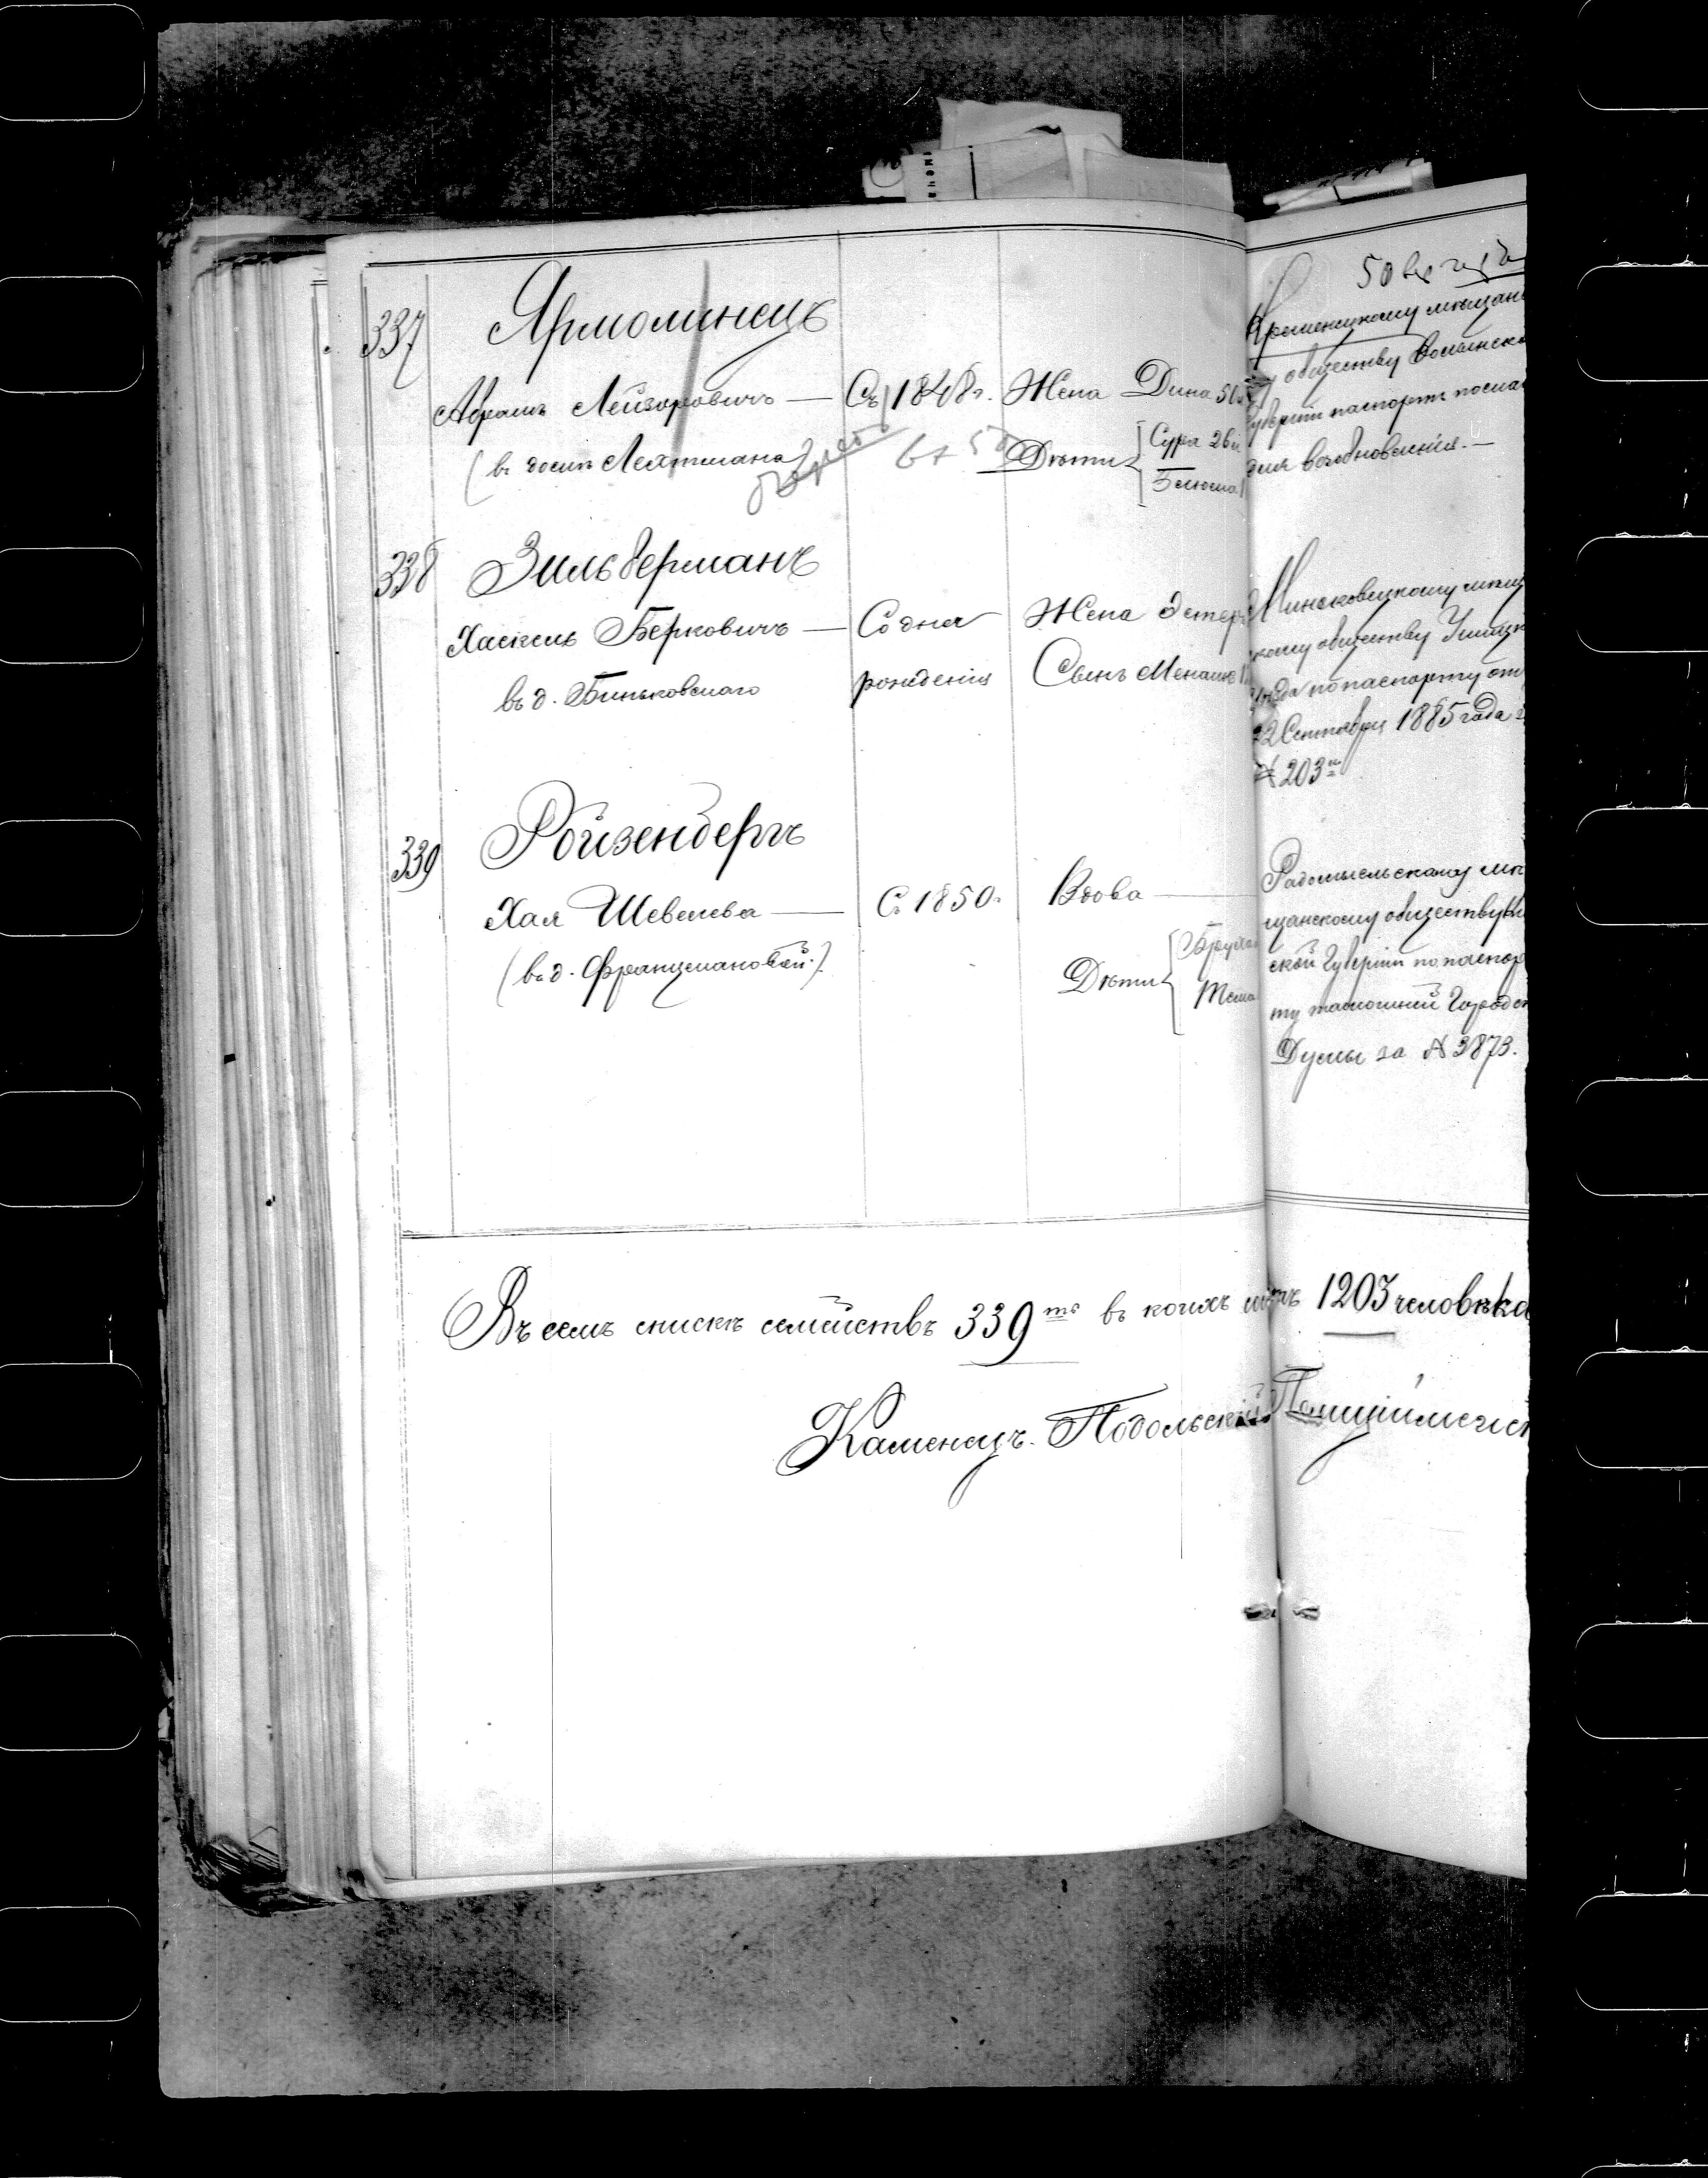 337 Ярмолинецъ
Абрамъ Лейзоровичъ — Съ 1848 г. Жена Дина
(въ домѣ Лехтмана) Дѣти Сура 26
Блюма
50
Кременецкому мѣщан
обществу Волынско
губерніи паспортъ посла
для возобновленія.—
338 Зильберманъ
Хаскель Берковичъ — Со дня Жена Эстер
въ д. Биньковскаго рожденія Сынъ Менаше
Миньковецкому мѣщ
скому обществу Ушицк
уѣзда по паспорту от
22 Сентября 1885 года з
№ 203
339 Ройзенбергъ
Хая Шевелева — Съ 1850. Вдова —
(въ д. Францмановой.) Дѣти
Радомысльскому мѣ
щанскому обществу Кі
ской Губерніи по паспор
ту тамошней Городск
Думы за № 3873.
Въ семъ спискѣ семействъ 339 въ коихъ 1203 человѣка
Каменецъ-Подольскій Полиціймейст